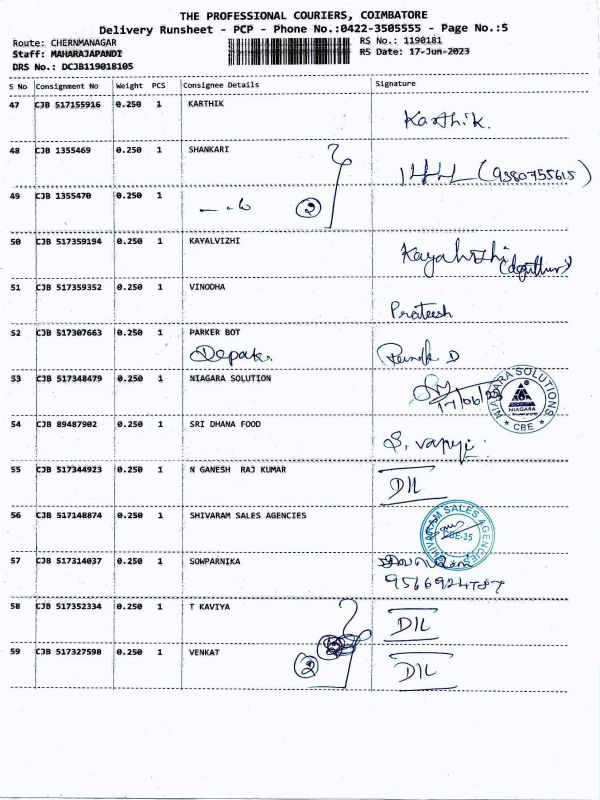 THE PROFESSIONAL COURIERS, COIMBATORE
Delivery Runsheet - PCP - Phone No.:0422-3505555 - Page No.:5
Route: CHERNMANAGAR RS No.: 1190181
Staff: MAHARAJAPANDI RS Date: 17-Jun-2023
DRS No.: DCJB119018105
S No Consignment No Weight PCS Consignee Details Signature
47 CJB 517155916 0.250 1 KARTHIK
Karthik.
48 CJB 1355469 0.250 1 SHANKARI
(9380755615)
49 CJB 1355470 0.250 1
2
50 CJB 517359194 0.250 1 KAYALVIZHI
Kayalvizhi
51 CJB 517359352 0.250 1 VINODHA
Prateesh
52 CJB 517307663 0.250 1 PARKER BOT
Depak. D
53 CJB 517348479 0.250 1 NIAGARA SOLUTION
17/06/23
NIAGARA SOLUTIONS
NIAGARA
* CBE *
54 CJB 89487902 0.250 1 SRI DHANA FOOD
S.
55 CJB 517344923 0.250 1 N GANESH RAJ KUMAR
DIL
56 CJB 517148874 0.250 1 SHIVARAM SALES AGENCIES
SHIVARAM SALES AGENCIES
CBE-35
57 CJB 517314037 0.250 1 SOWPARNIKA
9566924787
58 CJB 517352334 0.250 1 T KAVIYA
DIL
59 CJB 517327598 0.250 1 VENKAT
2 DIL